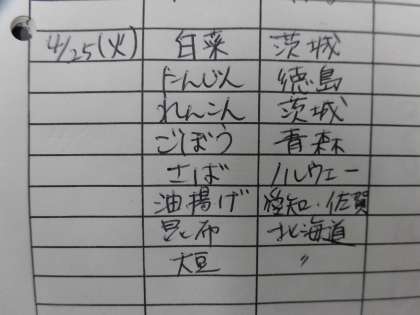 4/25(火) 白菜 茨城
にんじん 徳島
れんこん 茨城
ごぼう 青森
さば ノルウェー
油揚げ 愛知・佐賀
昆布 北海道
大豆 〃